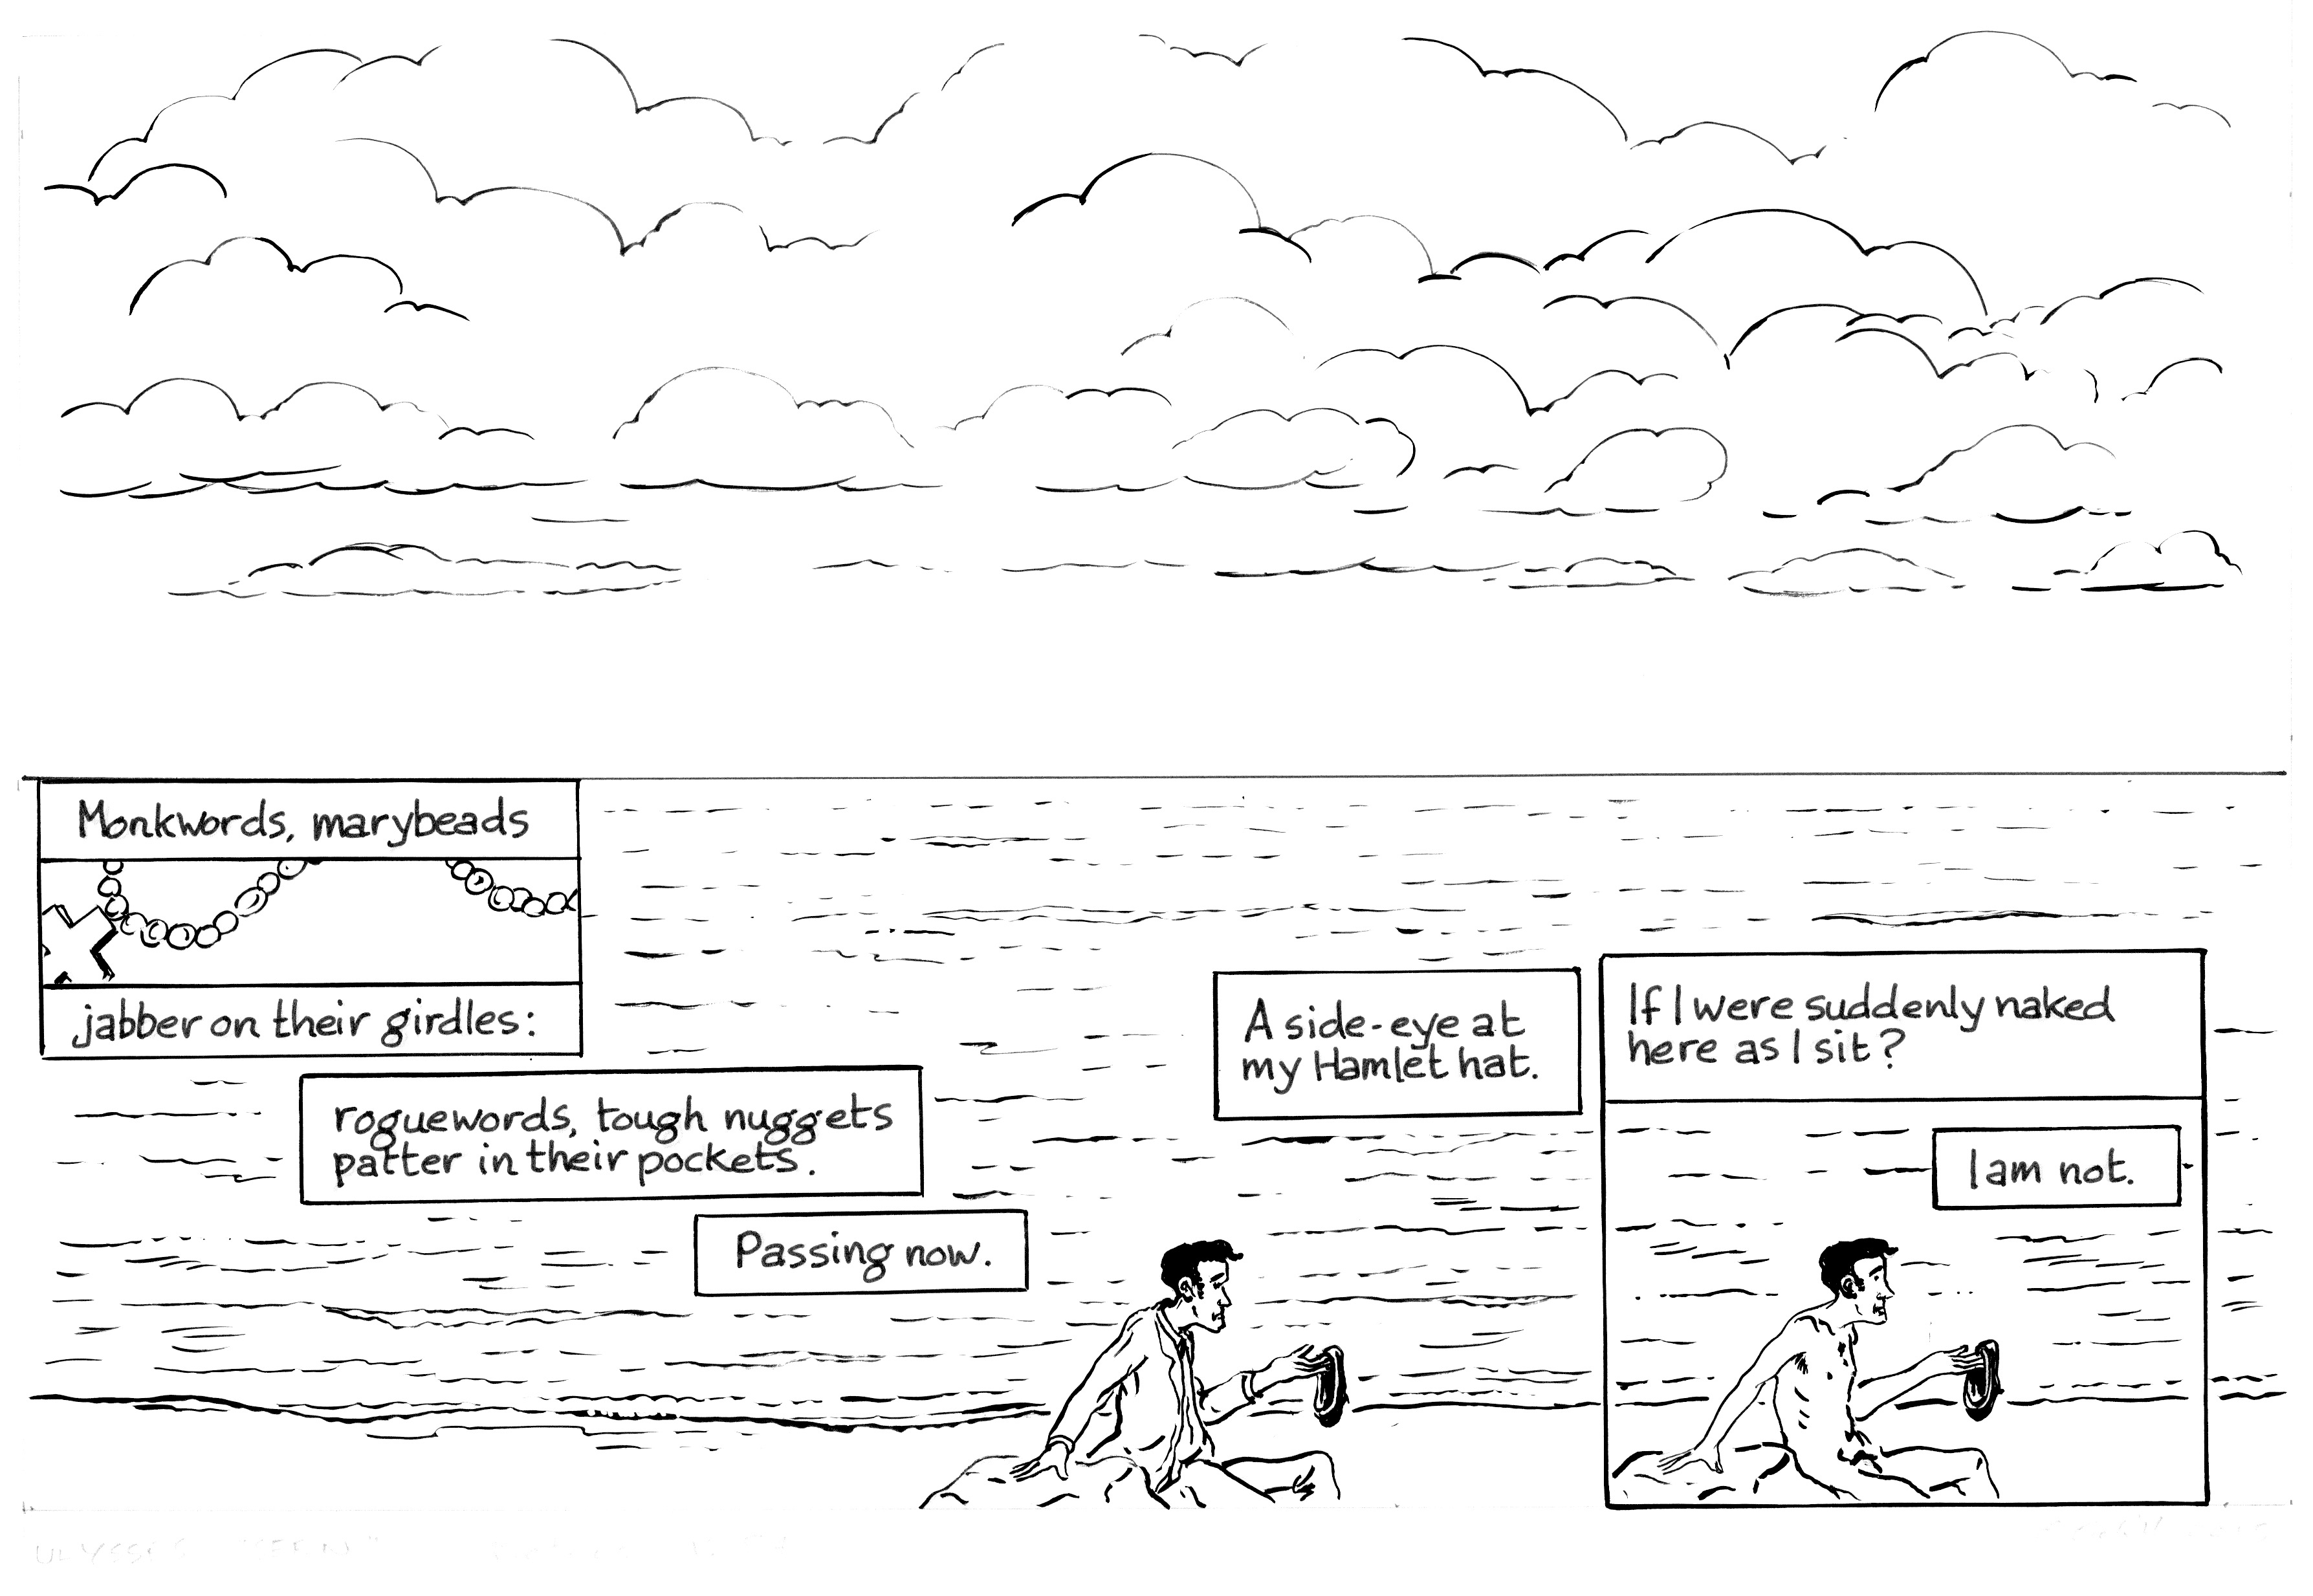 Monkwords, marybeads
jabber on their girdles:
roguewords, tough nuggets
patter in their pockets.
Passing now.
A side-eye at
my Hamlet hat.
If I were suddenly naked
here as I sit?
I am not.
ULYSSES